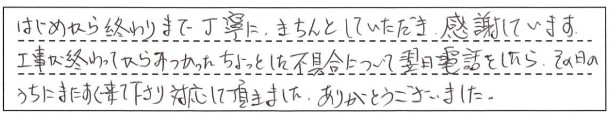 はじめから終わりまで丁寧に、きちんとしていただき、感謝しています。
工事が終わってからみつかったちょっとした不具合について翌日電話をしたら、その日の
うちにまたすぐ来て下さり対応して頂きました。ありがとうございました。